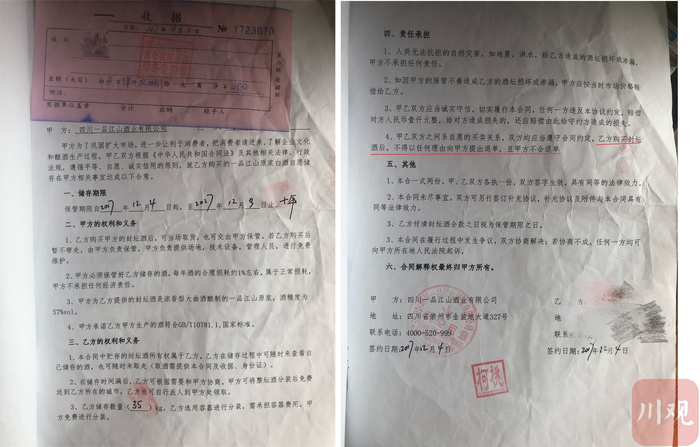 收 据
№ 1723070
金额(大写)
附注:
会计
出纳
经手人
甲 方：四川一品江山酒业有限公司
甲方为了巩固扩大市场，进一步让利于消费者，把消费者请进来，了解企业文化
和酿酒生产过程，甲乙双方根据《中华人民共和国合同法》及其他相关法律、行政
法规，遵循平等、自愿、诚实信用的原则，就乙方购买的一品江山原浆白酒自愿储
存在甲方相关事宜达成以下合意。
一、储存期限
保管期限自2017年12月4日起，至2027年12月3日止。十年
二、甲方的权利和义务
1、乙方购买甲方的封坛酒后，可当场取货，也可交由甲方保管。若乙方购买后
暂不带走，由甲方负责保管，甲方负责提供场地，技术设备，管理人员，进行免费
维护。
2、甲方必须保管好乙方储存的酒，每年酒的合理损耗约1%左右，属于正常损耗，
甲方不承担任何经济责任。
3、甲方为乙方提供的封坛酒是浓香型大曲酒酿制的一品江山原浆，酒精度为
57%vol.
4、甲方承诺乙方甲方生产的酒符合GB/T10781.1,国家标准。
三、乙方的权利和义务
1、本合同中贮存的封坛酒所有权属于乙方，乙方在储存过程中可随时来查看自
己储存的酒，也可随时来取走（取酒需提供本合同及收据、身份证）。
2、在储存时间满后，乙方可根据需要和甲方协商，甲方可将整坛酒分装后免费
送到乙方所在的城市，乙方也可自行派人到甲方处领取。
3、乙方储存数量（35）kg，乙方选用容器进行分装，需承担容器费用，甲
方免费进行分装。
四、责任承担
1、人类无法抗拒的自然灾害，如地震，洪水，给乙方造成的酒坛损坏或渗漏，
甲方不承担任何责任。
2、如因甲方的保管不善造成乙方的酒坛损坏或渗漏，甲方应按当时市场价格赔
偿给乙方。
3、甲乙双方应当诚实守信，切实履行本合同，任何一方违反本协议约定，赔偿
对方人民币壹仟元整，给对方造成损失的，还应赔偿由此给守约方造成的损失。
4、甲乙双方之间系自愿的买卖关系，双方均应当遵守合同约定，乙方购买封坛
酒后，不得以任何理由向甲方提出退单，且甲方不会退单。
五、其他
1、本合一式两份，甲、乙双方各执一份，双方签字生效，具有同等的法律效力。
2、本合同未尽事宜，双方可另行签订补充协议，补充协议及附件与本合同具有
同等法律效力。
2、乙方付清封坛酒全款之日视为保管期限之日。
3、本合同在履行过程中发生争议，双方协商解决；若协商不成，任何一方均可
向甲方所在地人民法院起诉。
六、合同解释权最终归甲方所有。
甲 方：四川一品江山酒业有限公司
地 址：四川省崇州市金盆地大道327号
联系电话：4000-520-999
签约日期：2017年12月4日
乙 方：
地
联系
签约日期：2017年12月4日
川观